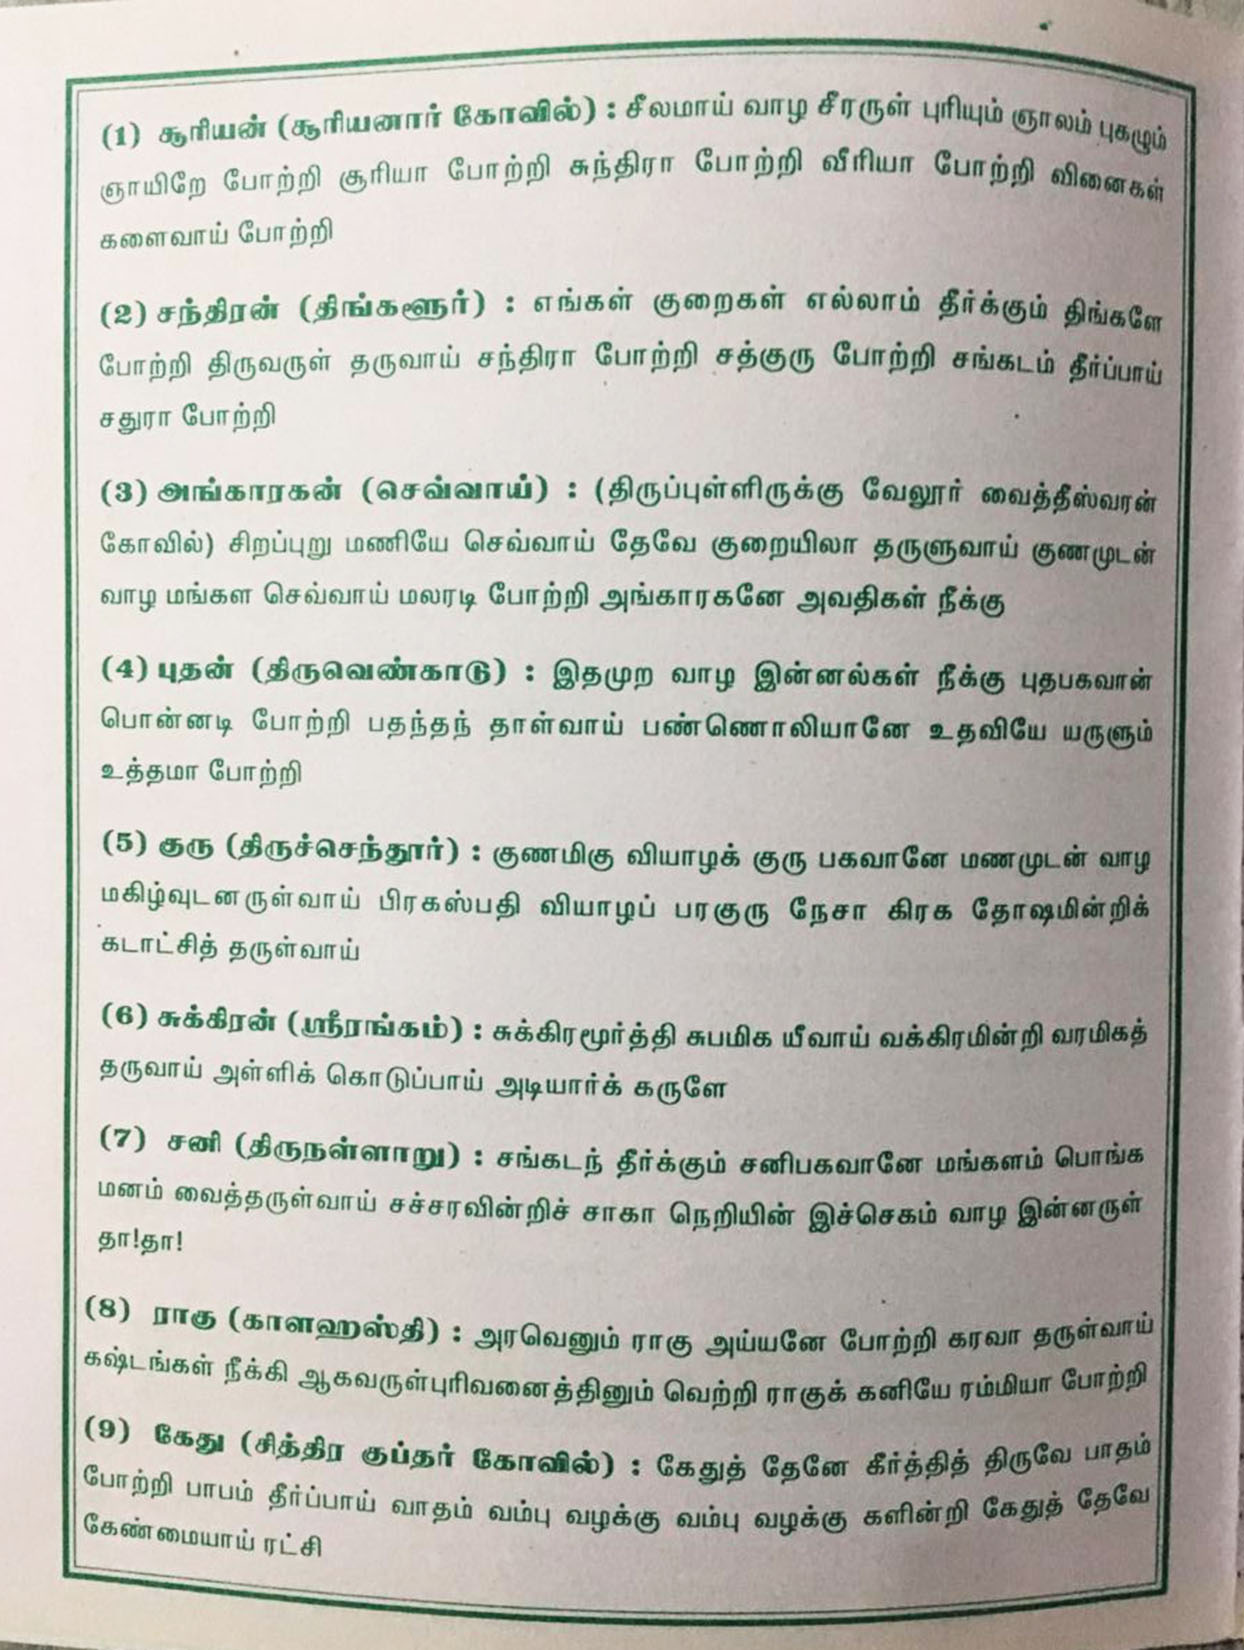 (1) சூரியன் (சூரியனார் கோவில்) : சீலமாய் வாழ சீரருள் புரியும் ஞாலம் புகழும்
ஞாயிறே போற்றி சூரியா போற்றி சுந்திரா போற்றி வீரியா போற்றி வினைகள்
களைவாய் போற்றி
(2) சந்திரன் (திங்களூர்) : எங்கள் குறைகள் எல்லாம் தீர்க்கும் திங்களே
போற்றி திருவருள் தருவாய் சந்திரா போற்றி சத்குரு போற்றி சங்கடம் தீர்ப்பாய்
சதுரா போற்றி
(3) அங்காரகன் (செவ்வாய்) : (திருப்புள்ளிருக்கு வேலூர் வைத்தீஸ்வரன்
கோவில்) சிறப்புறு மணியே செவ்வாய் தேவே குறையிலா தருளுவாய் குணமுடன்
வாழ மங்கள செவ்வாய் மலரடி போற்றி அங்காரகனே அவதிகள் நீக்கு
(4) புதன் (திருவெண்காடு) : இதமுற வாழ இன்னல்கள் நீக்கு புதபகவான்
பொன்னடி போற்றி பதந்தந் தாள்வாய் பண்ணொலியானே உதவியே யருளும்
உத்தமா போற்றி
(5) குரு (திருச்செந்தூர்) : குணமிகு வியாழக் குரு பகவானே மணமுடன் வாழ
மகிழ்வுடனருள்வாய் பிரகஸ்பதி வியாழப் பரகுரு நேசா கிரக தோஷமின்றிக்
கடாட்சித் தருள்வாய்
(6) சுக்கிரன் (ஸ்ரீரங்கம்) : சுக்கிரமூர்த்தி சுபமிக யீவாய் வக்கிரமின்றி வரமிகத்
தருவாய் அள்ளிக் கொடுப்பாய் அடியார்க் கருளே
(7) சனி (திருநள்ளாறு) : சங்கடந் தீர்க்கும் சனிபகவானே மங்களம் பொங்க
மனம் வைத்தருள்வாய் சச்சரவின்றிச் சாகா நெறியின் இச்செகம் வாழ இன்னருள்
தா!தா!
(8) ராகு (காளஹஸ்தி) : அரவெனும் ராகு அய்யனே போற்றி கரவா தருள்வாய்
கஷ்டங்கள் நீக்கி ஆகவருள்புரிவனைத்தினும் வெற்றி ராகுக் கனியே ரம்மியா போற்றி
(9) கேது (சித்திர குப்தர் கோவில்) : கேதுத் தேனே கீர்த்தித் திருவே பாதம்
போற்றி பாபம் தீர்ப்பாய் வாதம் வம்பு வழக்கு வம்பு வழக்கு களின்றி கேதுத் தேவே
கேண்மையாய் ரட்சி